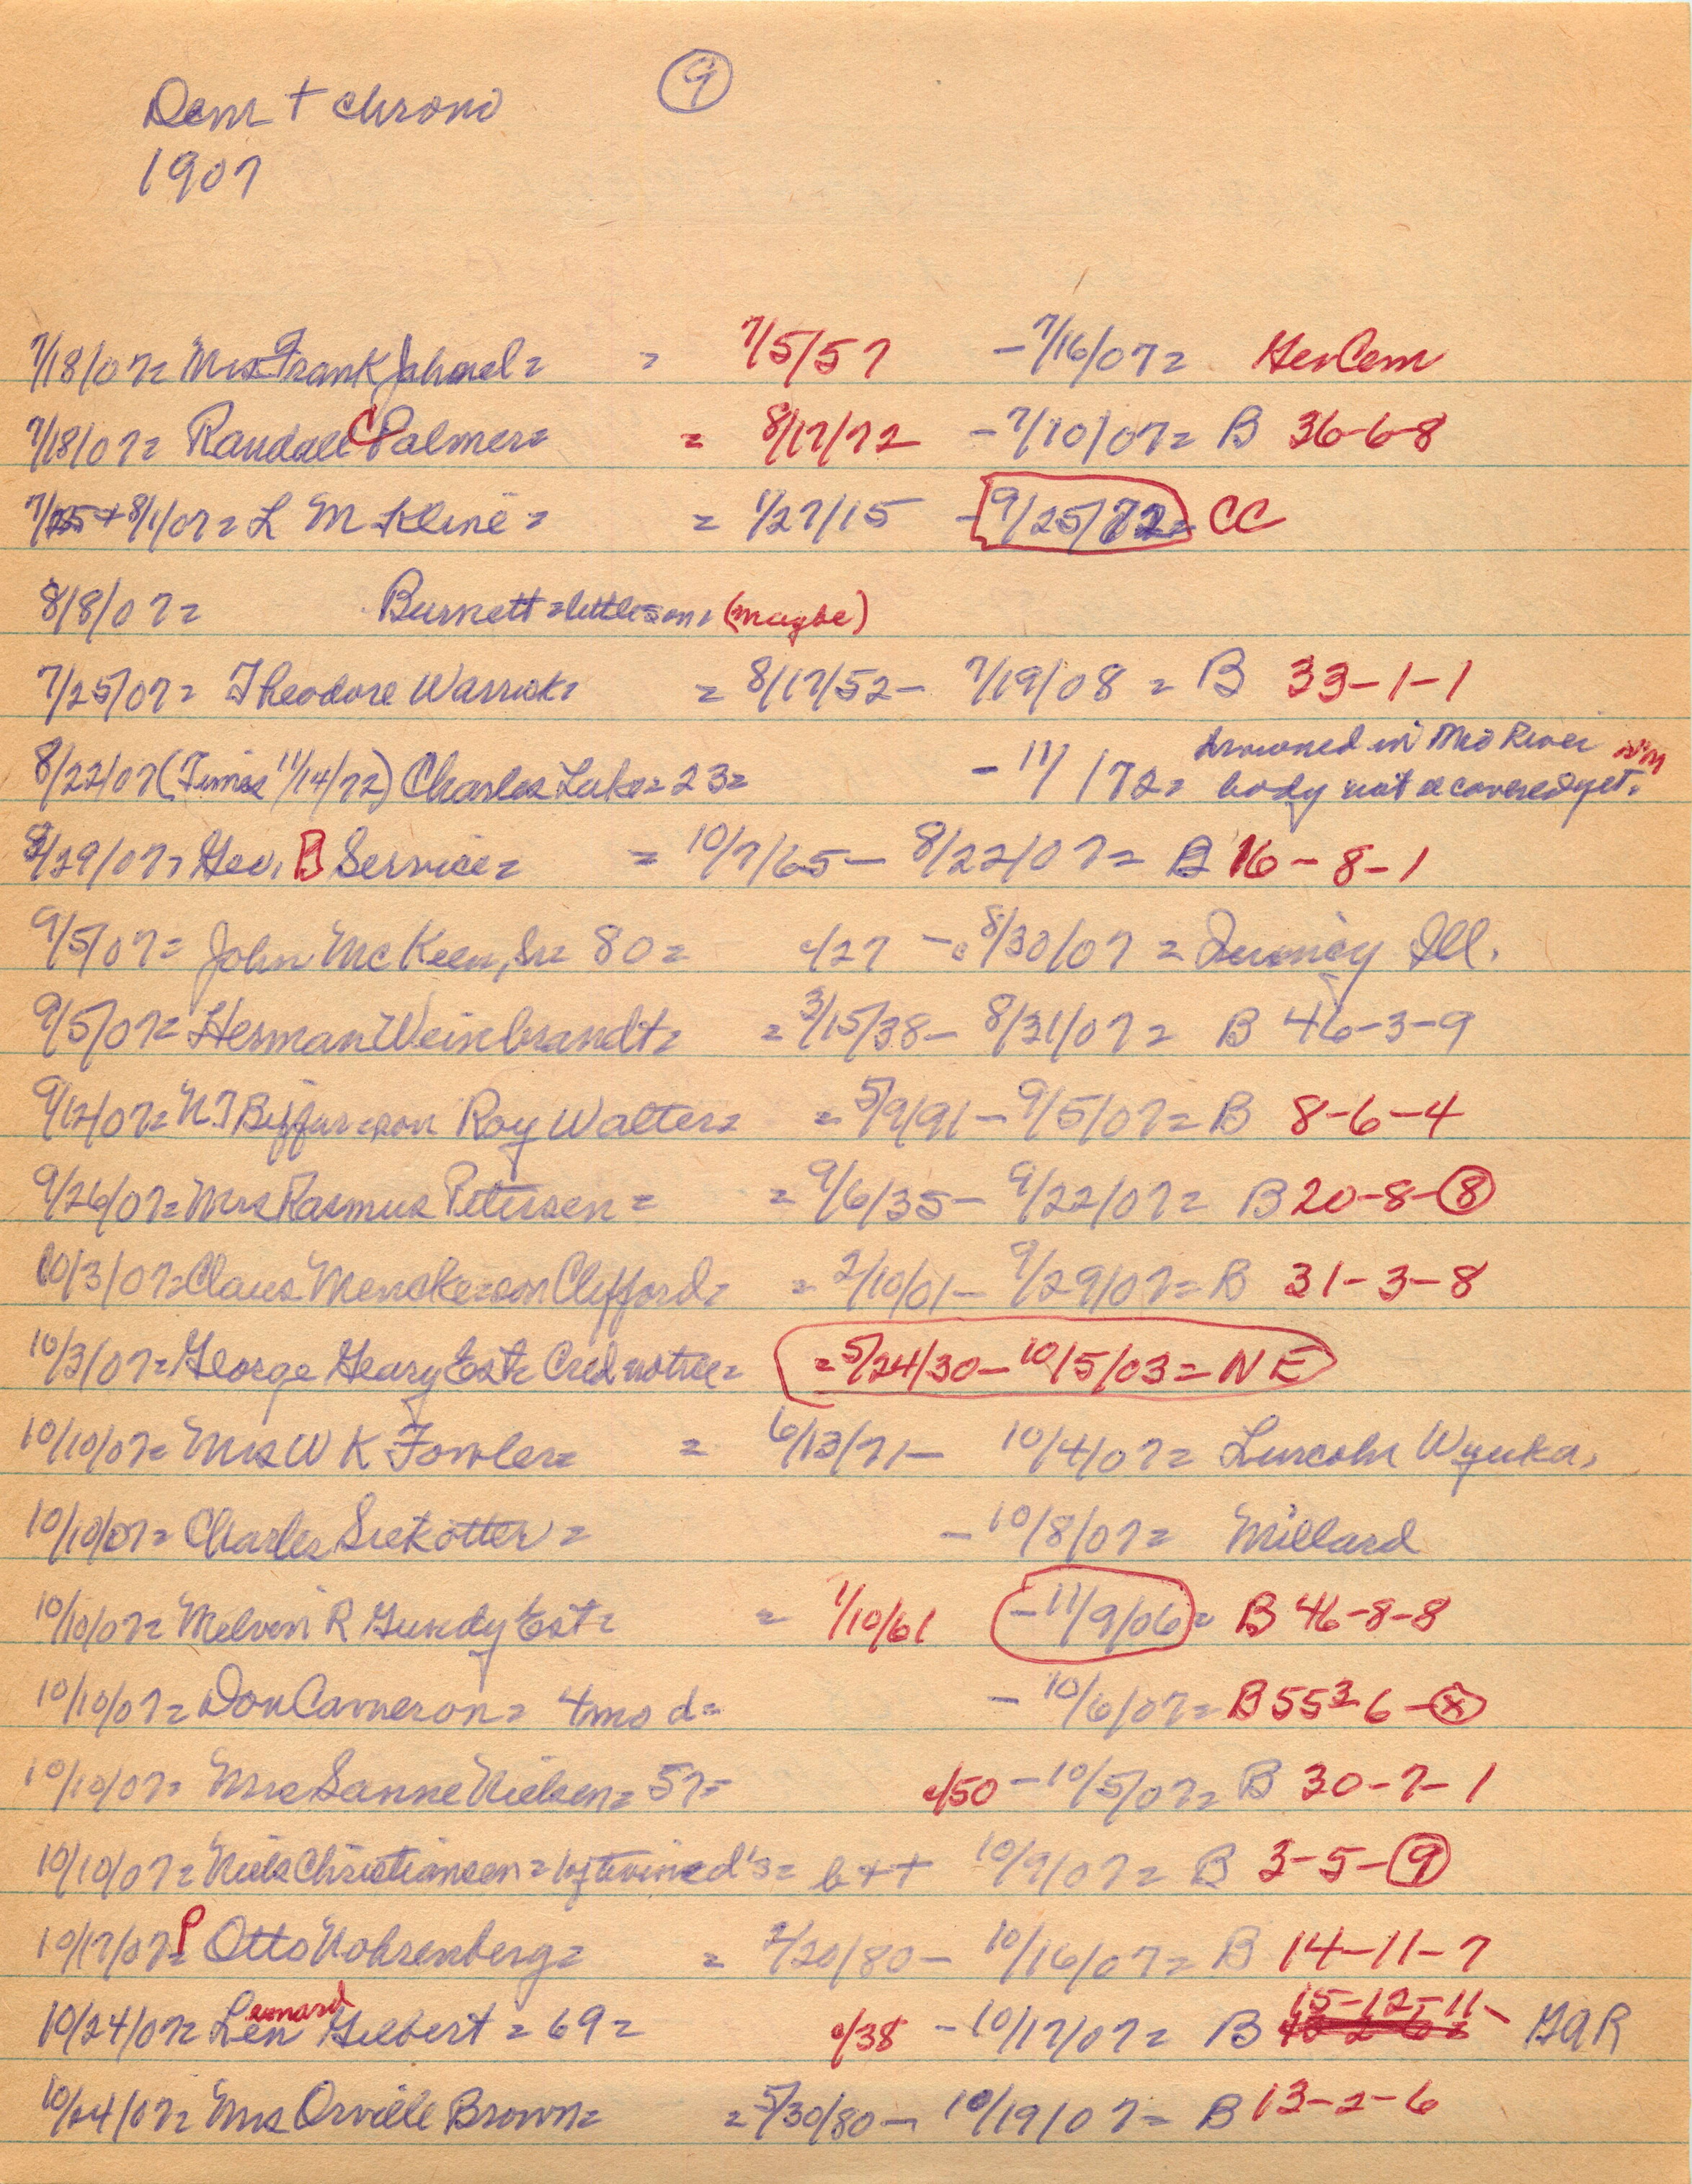 9
Dem + chrono
1907
7/18/07= Mrs Frank Jahnel= = 7/5/57 - 7/16/07= HerCem
7/18/07= Randall C Palmer= = 8/17/72 - 7/10/07= B 36-6-8
7/25+8/1/07= L M Kline= = 1/27/15 - 9/25/72= CC
8/8/07= Burnett=little son= (maybe)
7/25/07= Theodore Warrick= = 8/17/52 - 7/19/08 = B 33-1-1
8/22/07 (Times 11/14/72) Charles Luke= 23= - 11/ /72= drowned in Mo River
body not recovered yet.
8/29/07= Geo. B Service= = 10/7/65 - 8/22/07= B 16-8-1
9/5/07= John McKeen, Sr= 80= c/27 - 8/30/07 = Quincy Ill.
9/5/07= Herman Weinbrandt= = 3/15/38 - 8/31/07= B 46-3-9
9/12/07= N.J Biffar=son Roy Walter= = 5/9/91 - 9/5/07= B 8-6-4
9/26/07= Mrs Rasmus Petersen= = 9/6/35 - 9/22/07= B 20-8-8
10/3/07= Claus Mencke=son Clifford= = 2/10/01 - 9/29/07= B 31-3-8
10/3/07= George Geary Est= Cred notice= = 5/24/30 - 10/5/03= NE
10/10/07= Mrs W K Fowler= = 6/13/71 - 10/4/07= Lincoln Wyuka.
10/10/07= Charles Siekotter= - 10/8/07= Millard
10/10/07= Melvin R Gundy Est= = 1/10/61 - 11/9/06= B 46-8-8
10/10/07= Don Cameron= 4mo d= - 10/6/07= B 55 3-6-x
10/10/07= Mrs Sanne Nielsen= 57= c/50 - 10/5/07= B 30-7-1
10/10/07= Niels Christiansen= 1 of twin d's= b++ 10/9/07= B 3-5-9
10/17/07= P Otto Nohrenberg= = 2/20/80 - 10/16/07= B 14-11-7
10/24/07= Leonard Gilbert = 69= c/38 - 10/17/07= B 15-12-11- GAR
10/24/07= Mrs Orville Brown= = 5/30/80 - 10/19/07= B 13-2-6